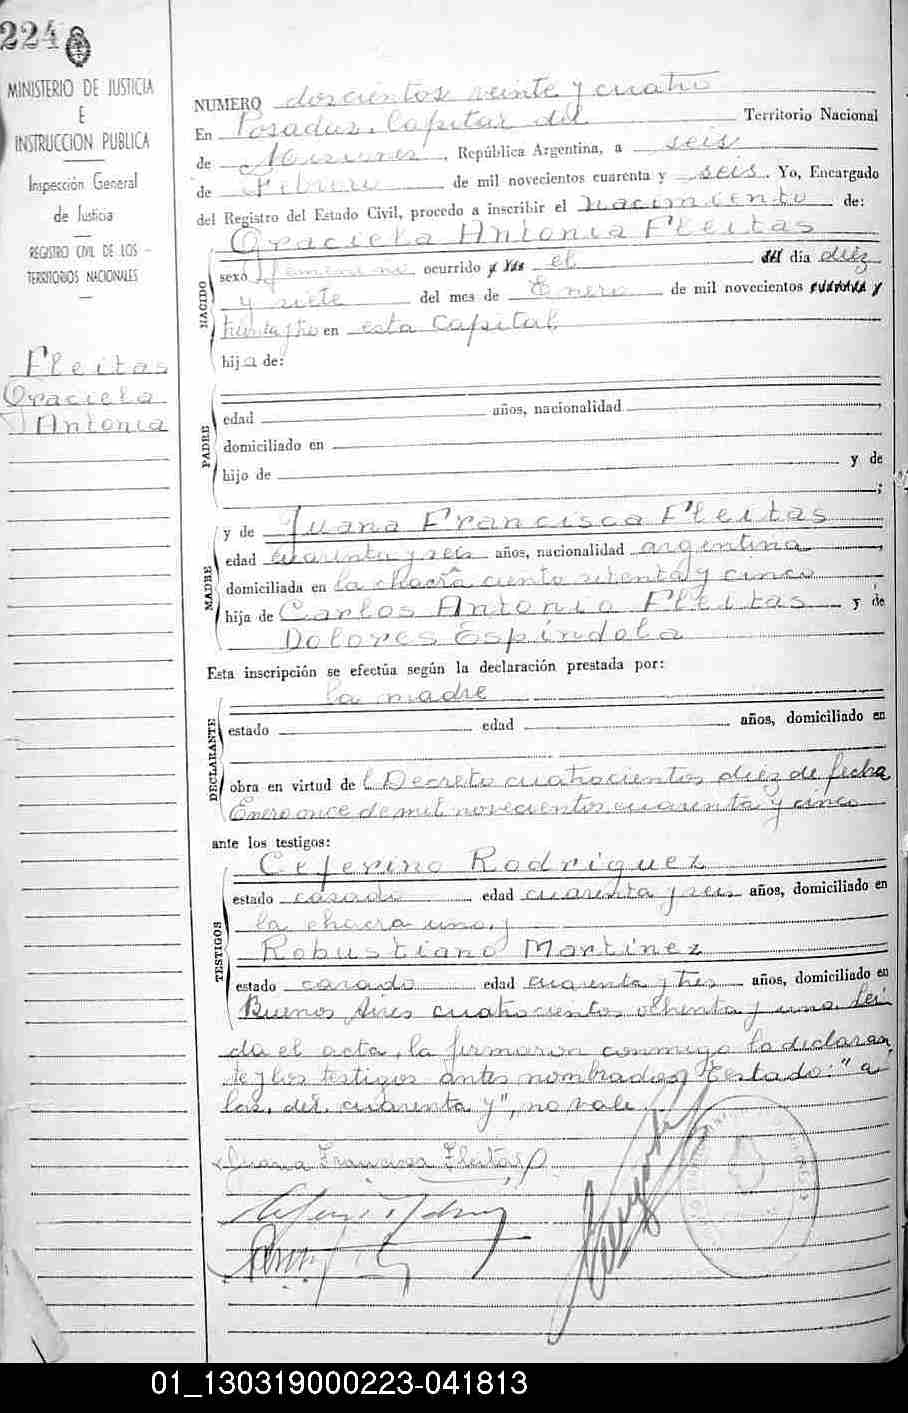 224
MINISTERIO DE JUSTICIA
E
INSTRUCCION PUBLICA
Inspección General
de Justicia
REGISTRO CIVIL DE LOS
TERRITORIOS NACIONALES
Fleitas
Graciela
Antonia
NUMERO doscientos veinte y cuatro
En Posadas, Capital del Territorio Nacional
de Misiones, República Argentina, a seis
de Febrero de mil novecientos cuarenta y seis. Yo, Encargado
del Registro del Estado Civil, procedo a inscribir el nacimiento de:
Graciela Antonia Fleitas
NACIDO
sexo femenino ocurrido a las el del día diez
y siete del mes de Enero de mil novecientos cuarenta y
treinta y ocho en esta Capital,
hija de:
PADRE
edad años, nacionalidad ,
domiciliado en
hijo de y de
;
MADRE
y de Juana Francisca Fleitas
edad cuarenta y seis años, nacionalidad argentina,
domiciliada en la chacra ciento setenta y cinco
hija de Carlos Antonio Fleitas y de
Dolores Espíndola
Esta inscripción se efectúa según la declaración prestada por:
la madre
DECLARANTE
estado edad años, domiciliado en
obra en virtud del Decreto cuatrocientos diez de fecha
Enero once de mil novecientos cuarenta y cinco
ante los testigos:
TESTIGOS
Ceferino Rodriguez
estado casado edad cuarenta y seis años, domiciliado en
la chacra uno, y
Robustiano Martinez
estado casado edad cuarenta y tres años, domiciliado en
Buenos Aires cuatrocientos ochenta y uno. Lei
da el acta, la firmaron conmigo la declaran
te y los testigos antes nombrados. Testado: "a
las, del, cuarenta y", no vale.
Juana Francisca Fleitas
01_130319000223-041813